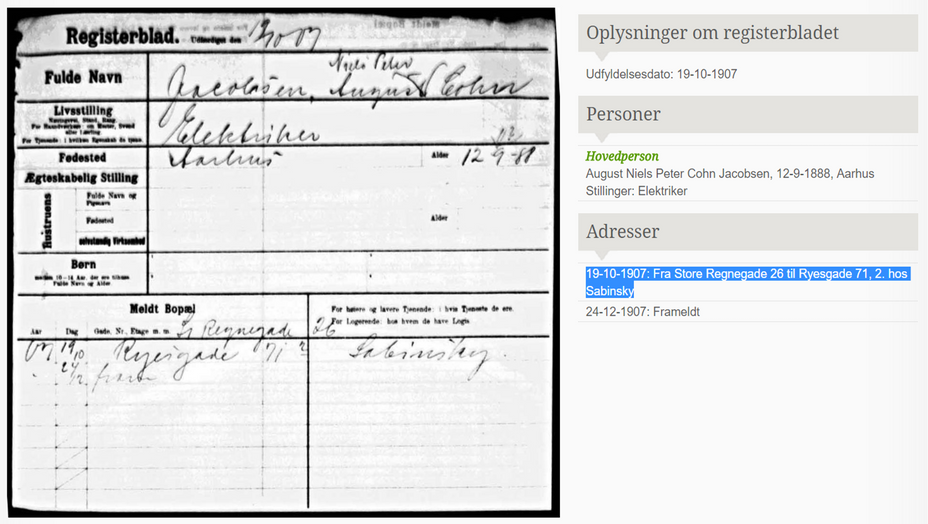 Registerblad. Udfærdiget den 19/10 07
Niels Peter
Fulde Navn Jacobsen, August Cohn
Livsstilling
Elektriker
Fødested Aarhus Alder 12-9-88
Ægteskabelig Stilling
Hustruens
Fulde Navn og
Pigenavn
Fødested Alder
selvstændig Virksomhed
Børn
Fulde Navn og Alder
Meldt Bopæl For højere og lavere Tjenende: i hvis Tjeneste de ere.
For Logerende: hos hvem de have Logis.
Aar Dag Gade, Nr., Etage m. m. St Regnegade 26
07 19/10 Ryesgade 71 2 Sabinsky.
24/12 fram
Oplysninger om registerbladet
Udfyldelsesdato: 19-10-1907
Personer
Hovedperson
August Niels Peter Cohn Jacobsen, 12-9-1888, Aarhus
Stillinger: Elektriker
Adresser
19-10-1907: Fra Store Regnegade 26 til Ryesgade 71, 2. hos
Sabinsky
24-12-1907: Frameldt